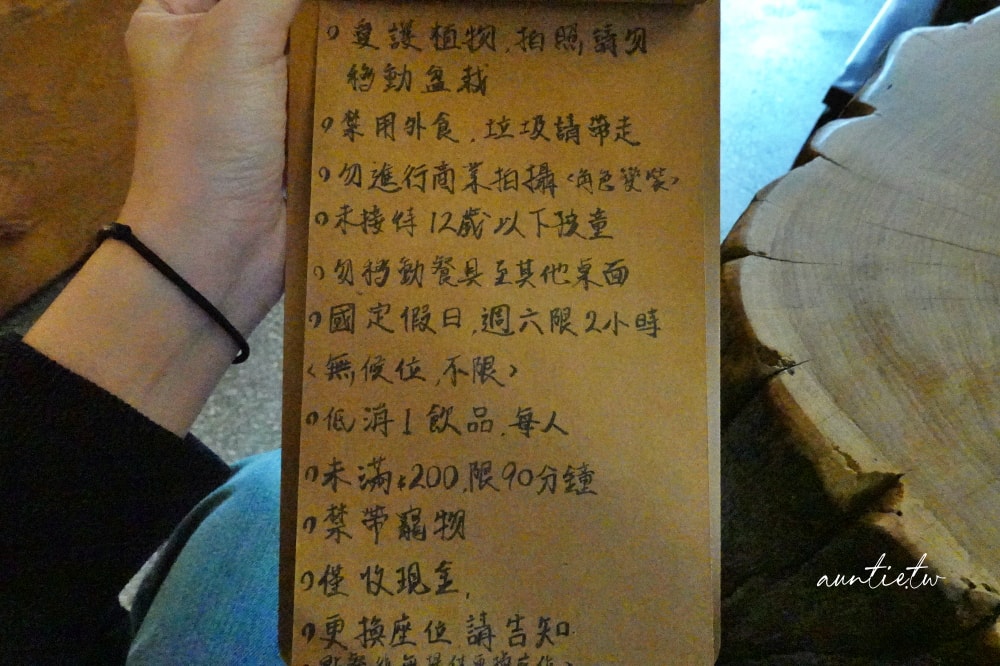 愛護植物,拍照請勿
移動盆栽
禁用外食,垃圾請帶走
勿進行商業拍攝<角色變裝>
未接待12歲以下孩童
勿移動餐具至其他桌面
國定假日,週六限2小時
<無候位,不限>
低消1飲品,每人
未滿$200,限90分鐘
禁帶寵物
僅收現金,
更換座位請告知
auntie.tw